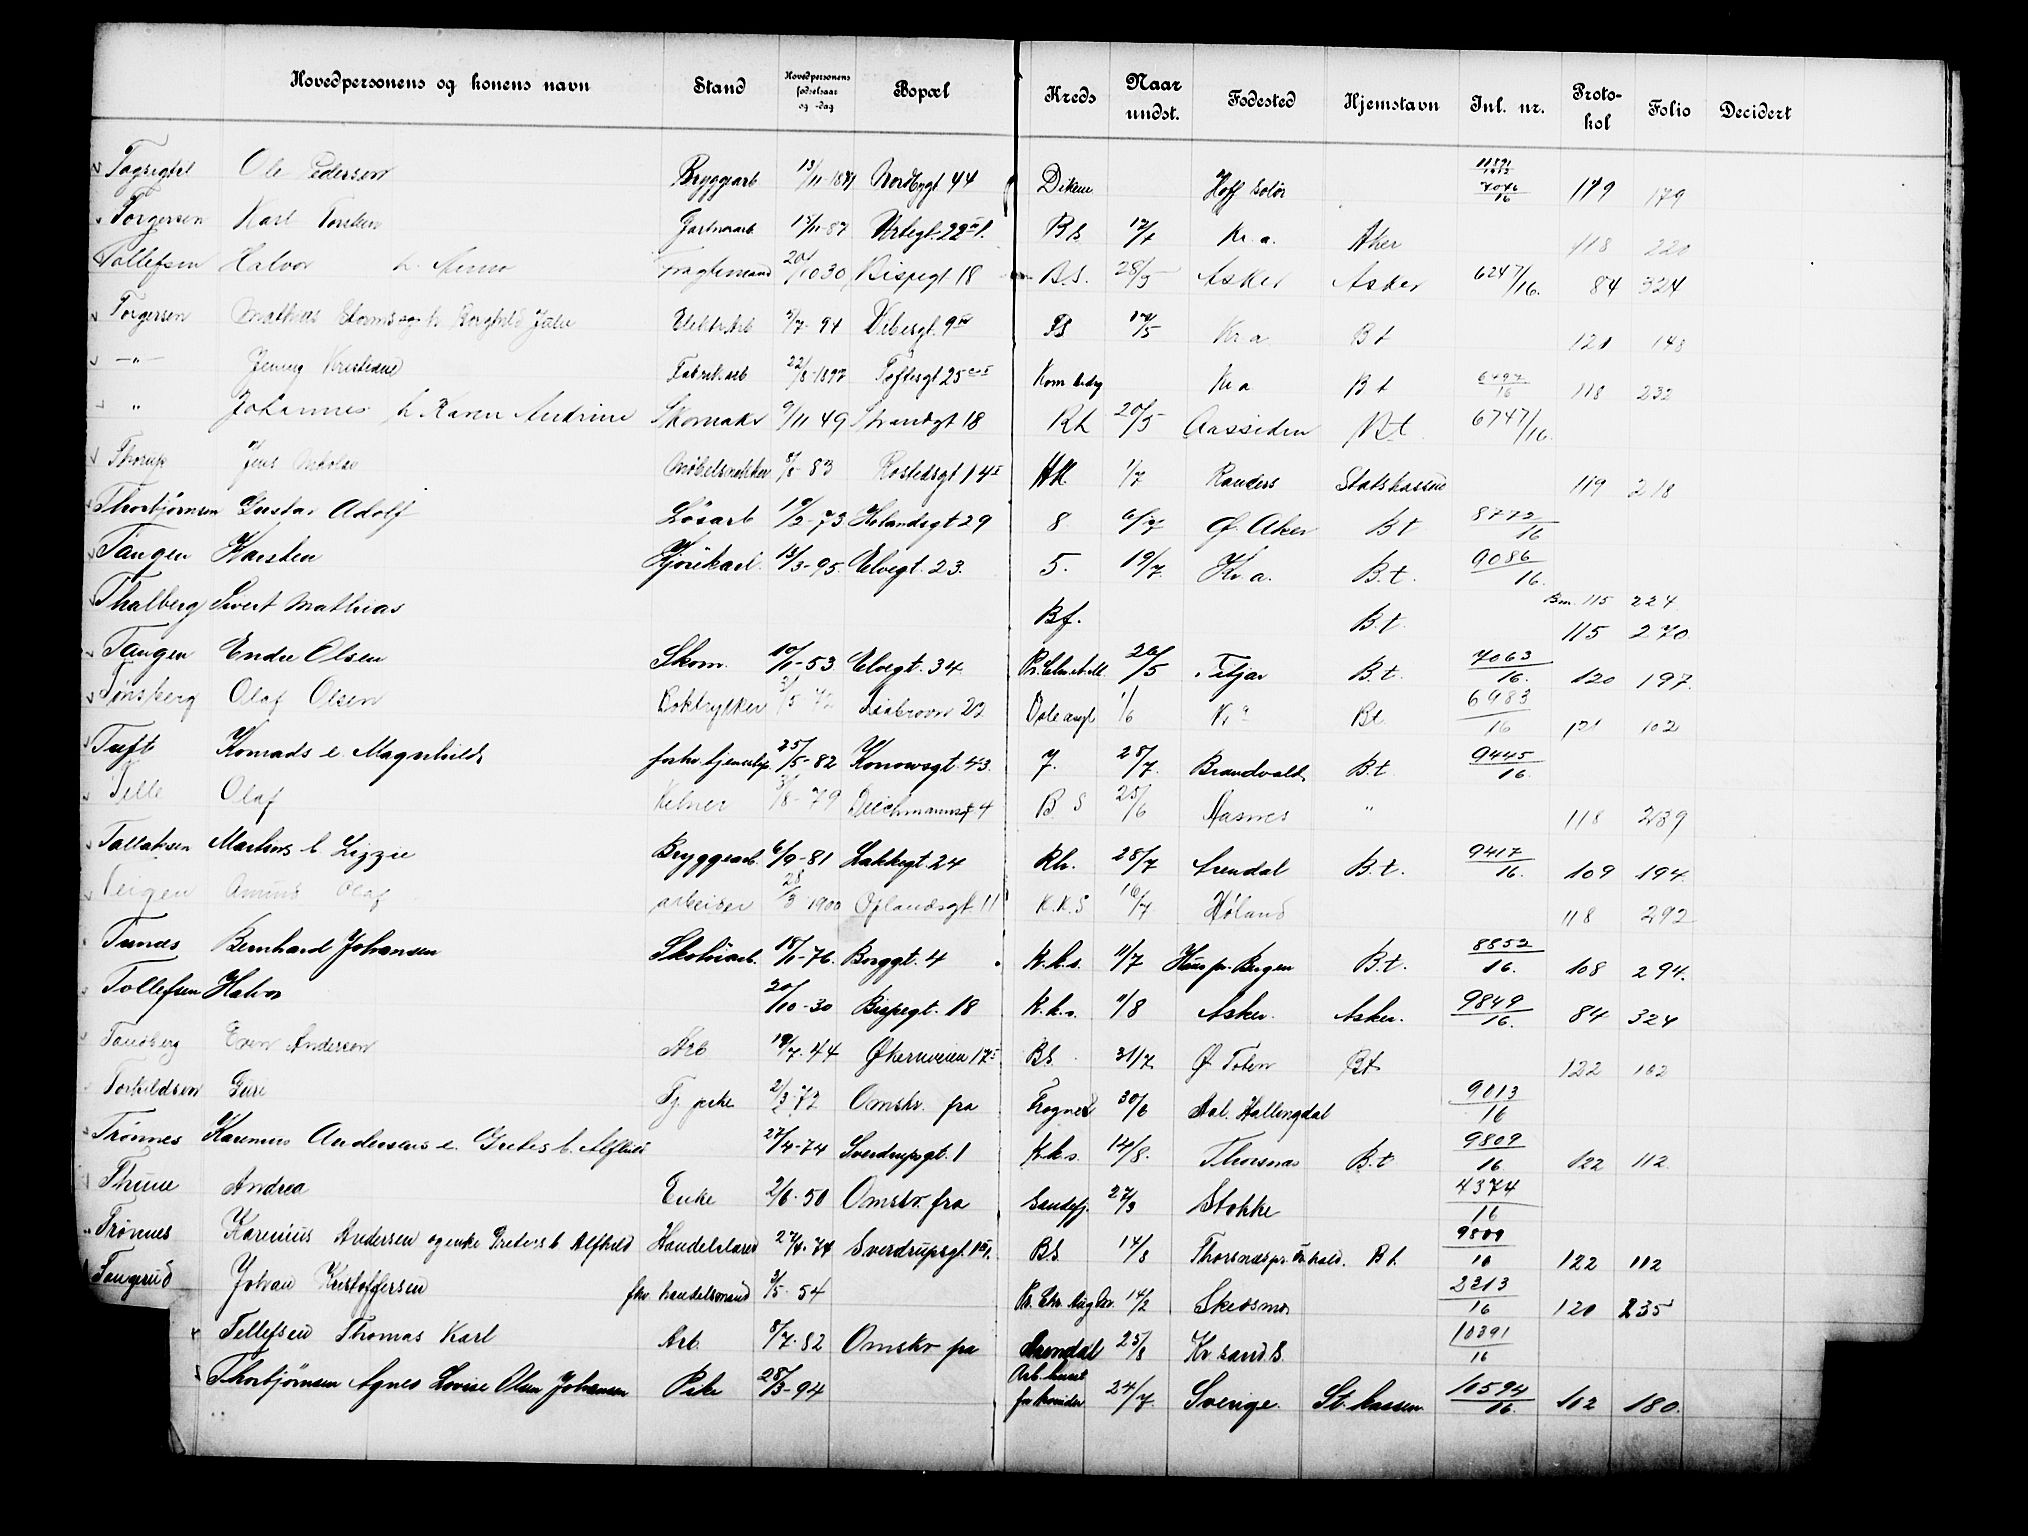 Hovedpersonens og konens navn Stand Hovedpersonens fødselsaar og -dag Bopæl Kreds Naar undst. Fødested Hjemstavn Inl. nr. Protokol Folio Decidert
Ole Pedersen Bryggearb 13/11-1871 44 Hoff Solør 7046/16 179
Torgersen Karl Torsten Gartnerarb 87 Urtegt. 22 BS Kr.a. Aker 118 220
Tollefsen Halvor 20/10 30 Bispegt 18 B.S. 28/5 Asker Asker 6247/16. 84 324
Torgersen Mathias 94 Vibesgt. 9 BS 5 Kr.a Bt 121 148
— " — Jenny Kristiane Fabrikarb 22/8-1897 Toftesgt 25 Kr a Bt 6497/16 118 232
" Johannes h. Karen Andrine Skomaker 9/11 49 Strandgt 18 Rh 20/5 Aassiden Bt. 6747/16.
Thorup Jens Nikolai Møbelsnekker 8/8-83 Rostedsgt 14 1/7 Randers Statskassen 119 218
Thorbjørnsen Gustav Adolf Løsarb 19/2-73 Hølandsgt 29 8 6/7 Ø. Aker Bt 8772/16
Tangen Karsten Kjørekarl. 13/3-95. Elvegt. 23. 5. 19/7. Kr.a. B.t. 9086/16.
Thalberg Sivert Mathias Bf. B.t. 115 224
115 270.
Tangen Endre Olsen Skom. 10/11-53 Elvegt. 34. 26/5 Fitjar B.t. 7063/16. 120 197.
Tønsberg Olaf Olsen Boktrykker 22 1/6 Kr a Bt. 6983/16 121 102
Tuft Konrads e. Magnhild 25/5-82 Konowsgt. 43. 7. 28/7. Brandvald B.t. 9445/16.
Tille Olaf Kelner 3/8-79 Deichmannsgt 4 B S 25/6 " 118 239
Tallaksen Markus h Lizzie Bryggearb. 6/9-81 Lakkegt. 24 Rh. 28/7 Arendal B.t. 9417/16. 109 194.
Teigen Amund Olaf arbeider 28/3-1900 Oplandsgt. 11 K.K.S 16/7 Høland 118 292
Tunæs Bernhard Johansen 18/11-76. Borggt. 4 K.k.s. 11/7 Haus pr. Bergen B.t. 8852/16. 108 294.
Tollefsen Halvor 20/10-30 Bispegt. 18 K.k.s. 11/8 Asker. Asker. 9849/16. 84 324
Tandberg Even Andersen Arb 19/7-44 Økernveien 17 BS. 31/7 Ø Toten Bt 122 102
Torkildsen Guri Tj. pike 2/3-72 Omskr. fra Frogner 30/6 Aal. Hallingdal 9013/16
Trønnes Karenius Andersens e. Gretes b. Alfhild 27/4-74 Sverdrupsgt. 1 K.k.s. 14/8. Thorsnæs B.t 9809/16 122 112.
Thune Andrea Enke 2/6-50 Omskr. fra Sandefj. 27/3 Stokke 4374/16
Trønnes Karenius Andersen og enke Gretes b Alfhild Handelslærd 27/4-74 Sverdrupsgt. 1 BS. 14/8 Bt. 9809/16 122 112
Tangerud Johan Kristoffersen fhv. handelsmand 3/5-54 14/2 Skedsmo 2213/16 120 235
Tellefsen Thomas Karl Arb. 8/7-82 Omskr fra Arendal 25/8 Kr.sand S. 10391/16
Thorbjørnsen Agnes Lovise Olsen Johansen Pike 28/3-94 Arb.huset for kvinder 24/7. Sverige. St. kassen 10594/16. 102 180.